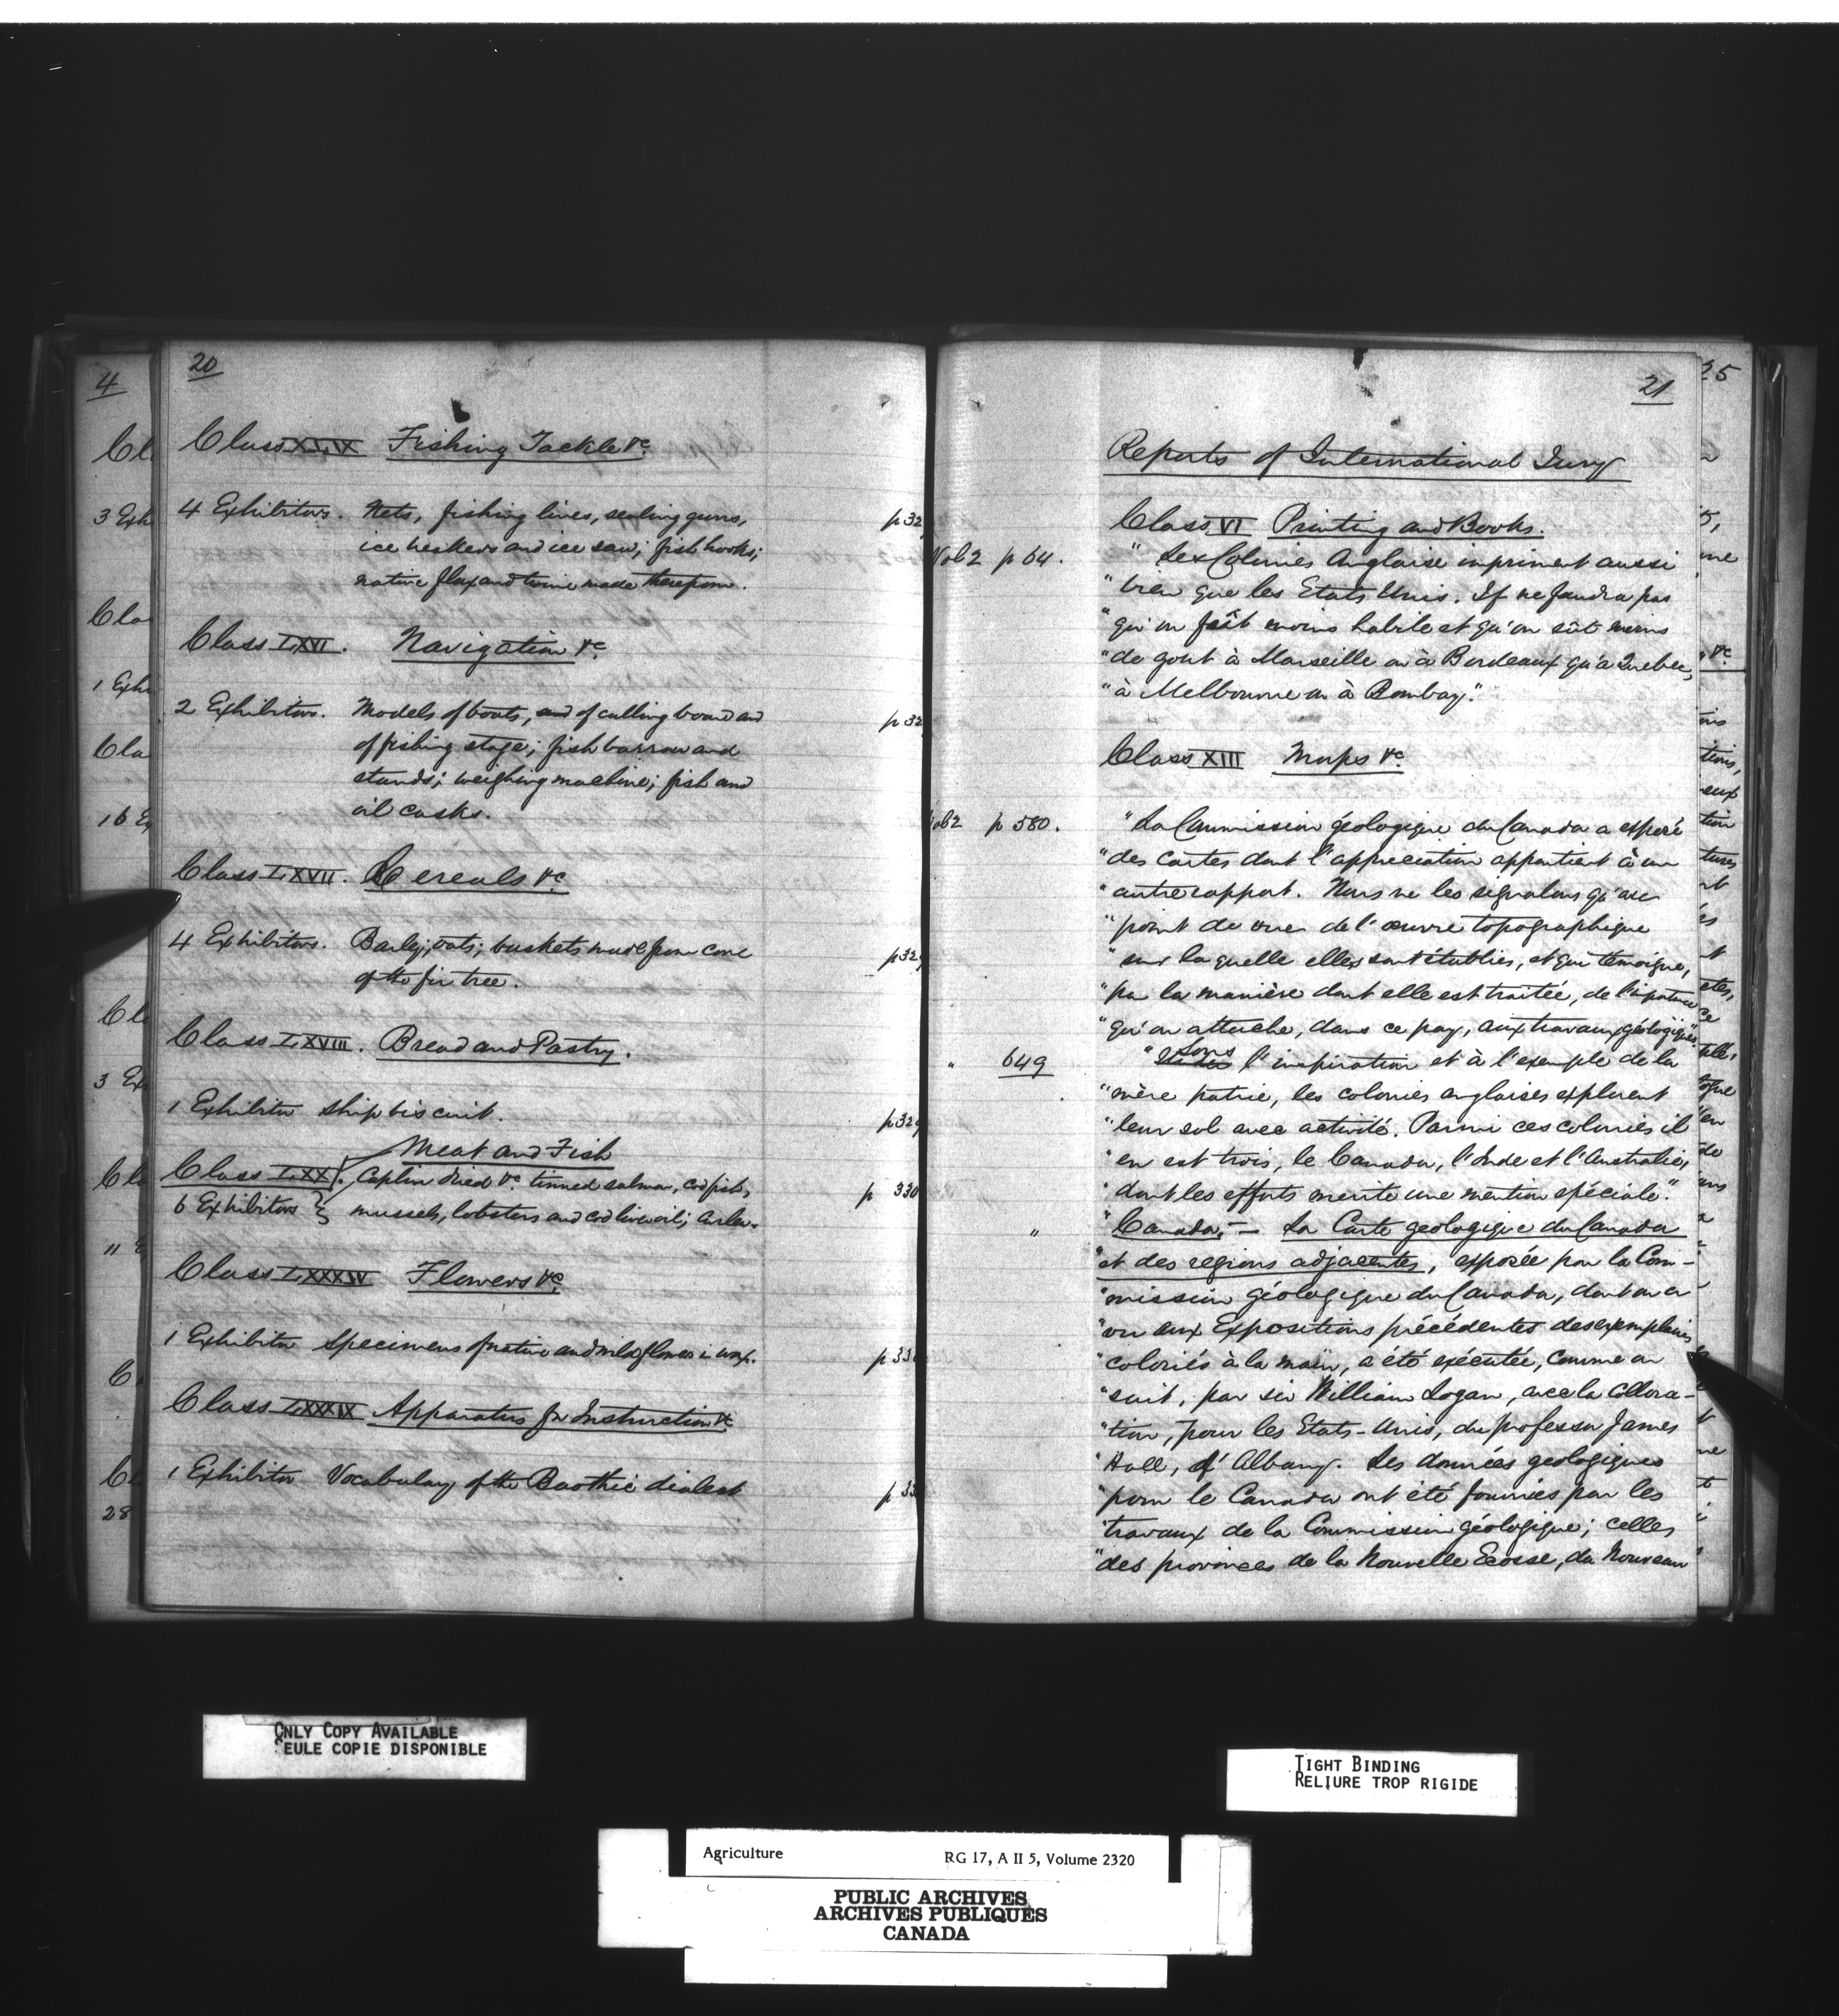 20
Class XLIX Fishing Tackle &c
4 Exhibitors. Nets, fishing lines, sealing guns, p 32
ice and ice saw; fish hooks;
native flax and twine made therefrom.
Class LXVI. Navigation &c
2 Exhibitors. Models of boats, and of culling board and p 32
of fishing stage; fish barrow and
stands; weighing machine; fish and
oil casks.
Class LXVII. Cereals &c
4 Exhibitors. Barley; oats; baskets made from cone p 329
of the fir tree.
Class LXVIII. Bread and Pastry.
1 Exhibitor Ship biscuit. p 329
Meat and Fish
Class LXX. Caplin dried &c tinned salmon, cod fish, p 330
6 Exhibitors mussels, lobsters and cod liver oil; curlew.
Class LXXXIV Flowers &c
1 Exhibitor Specimens of native and wild flowers in wax. p 33
Class LXXXIX Apparatus for Instruction &c
1 Exhibitor Vocabulary of the Boothic dialect p 33
21
Reports of International Jury
Class VI Printing and Books.
Vol 2 p 64. " Les Colonies Anglaise impriment aussi
" bien que les Etats Unis. Il ne faudra pas
" qu'on fût moins habile et qu'on eût moins
" de gout à Marseille ou à Bordeaux qu'a Quebec,
" à Melbourne ou à Bombay."
Class XIII Maps &c
Vol 2 p 580. " La Commission géologique du Canada a exposé
" des cartes dont l'appreciation appartient à un
" autre rapport. Nous ne les signalons qu'au
" point de vue de l'œuvre topographique
" sur laquelle elles sont établies, et qui témoigne,
" par la manière dont elle est traitée, de l'importance
" qu'on attache, dans ce pays, aux travaux géologiques."
" 649 " Sous l'inspiration et à l'exemple de la
" mère patrie, les colonies anglaises explorent
" leur sol avec activité. Parmi ces colonies il
" en est trois, le Canada, l'Inde et l'Australie,
" dont les efforts merite une mention spéciale."
" " Canada, — La Carte geologique du Canada
" et des regions adjacentes, exposée par la Com-
" mission géologique du Canada, dont on a
" vu aux Expositions précédentes des exemplaires
" coloriés à la main, a été exécutée, comme on
" sait, par sir William Logan, avec la collora-
" tion, pour les Etats-Unis, du professor James
" Hall, d'Albany. Les données geologiques
" pour le Canada ont été fournies par les
" travaux de la Commission géologique; celles
" des provinces de la Nouvelle Ecosse, du Nouveau
ONLY COPY AVAILABLE
SEULE COPIE DISPONIBLE
TIGHT BINDING
RELIURE TROP RIGIDE
Agriculture RG 17, A II 5, Volume 2320
PUBLIC ARCHIVES
ARCHIVES PUBLIQUES
CANADA